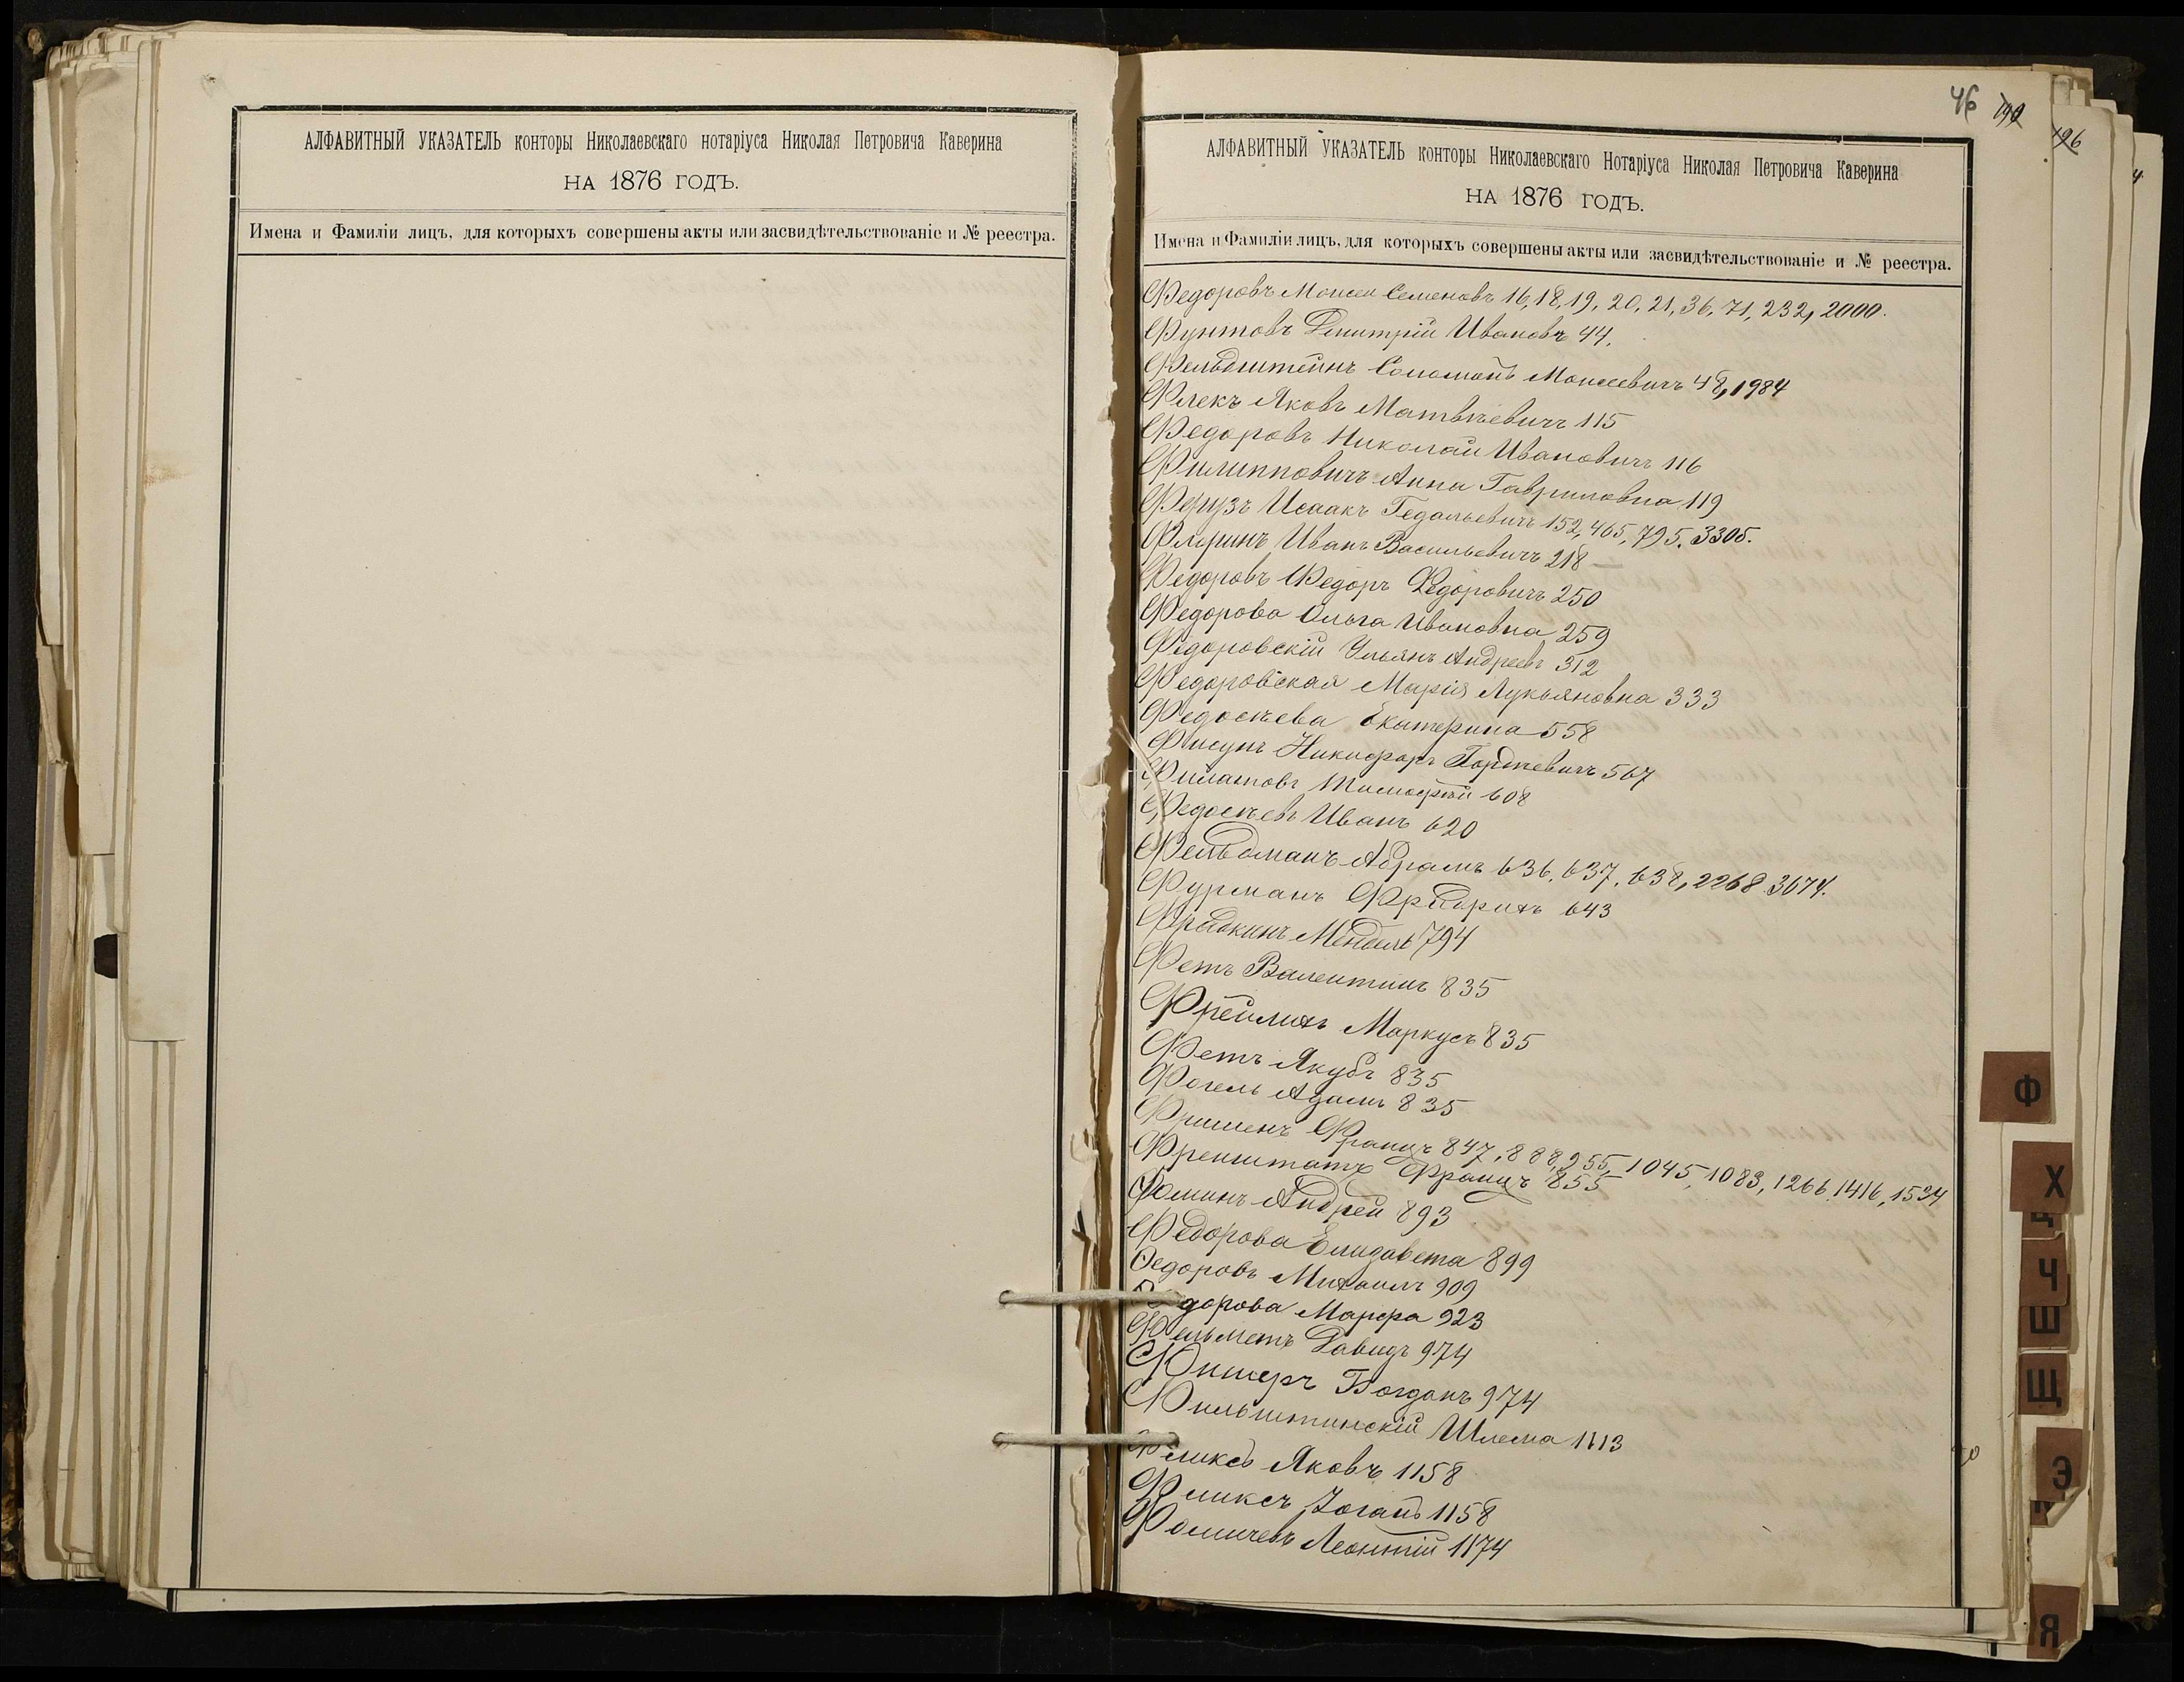 АЛФАВИТНЫЙ УКАЗАТЕЛЬ конторы Николаевскаго нотаріуса Николая Петровича Каверина
НА 1876 ГОДЪ.
Имена и Фамиліи лицъ, для которыхъ совершены акты или засвидѣтельствованіе и № реестра.
46 196
АЛФАВИТНЫЙ УКАЗАТЕЛЬ конторы Николаевскаго Нотаріуса Николая Петровича Каверина
НА 1876 ГОДЪ.
Имена и Фамиліи лицъ, для которыхъ совершены акты или засвидѣтельствованіе и № реестра.
Федоровъ Моисей Семеновъ 16, 18, 19, 20, 21, 36, 71, 232, 2000.
Фунтовъ Димитрій Ивановъ 44.
Фельдштейнъ Соломонъ Моисеевичъ 48, 1984
Флекъ Яковъ Матвѣевичъ 115
Федоровъ Николай Ивановичъ 116
Филипповичъ Анна Гавриловна 119
Ферузъ Исаакъ Гедальевичъ 152, 465, 795. 3305.
Флеринъ Иванъ Васильевичъ 218
Федоровъ Федоръ Федоровичъ 250
Федорова Ольга Ивановна 259
Федоровскій Ульянъ Андреевъ 312
Федоровская Марія Лукьяновна 333
Федосѣева Екатерина 558
Фисунъ Никифоръ Гордѣевичъ 567
Филатовъ Тимофѣй 608
Федосѣевъ Иванъ 620
Фельдманъ Абрамъ 636, 637, 638, 2268 3674.
Фурманъ Фридрихъ 643
Фрадкинъ Мендель 794
Фетъ Валентинъ 835
Фрейлихъ Маркусъ 835
Фетъ Якубъ 835
Фогель Адамъ 835
Фришенъ Францъ 847, 888, 955, 1045, 1083, 1266, 1416, 1534
Френштатъ Францъ 855
Фоминъ Андрей 893
Федорова Елизавета 899
Федоровъ Михаилъ 909
Федорова Марфа 923
Фельметъ Давидъ 974
Фишеръ Богданъ 974
Фильштинскій Шлема 1113
Феликсъ Яковъ 1158
Феликсъ Іоганъ 1158
Фомичевъ Леонтій 1174
Ф
Х
Ц
Ч
Ш
Щ
Э
Я